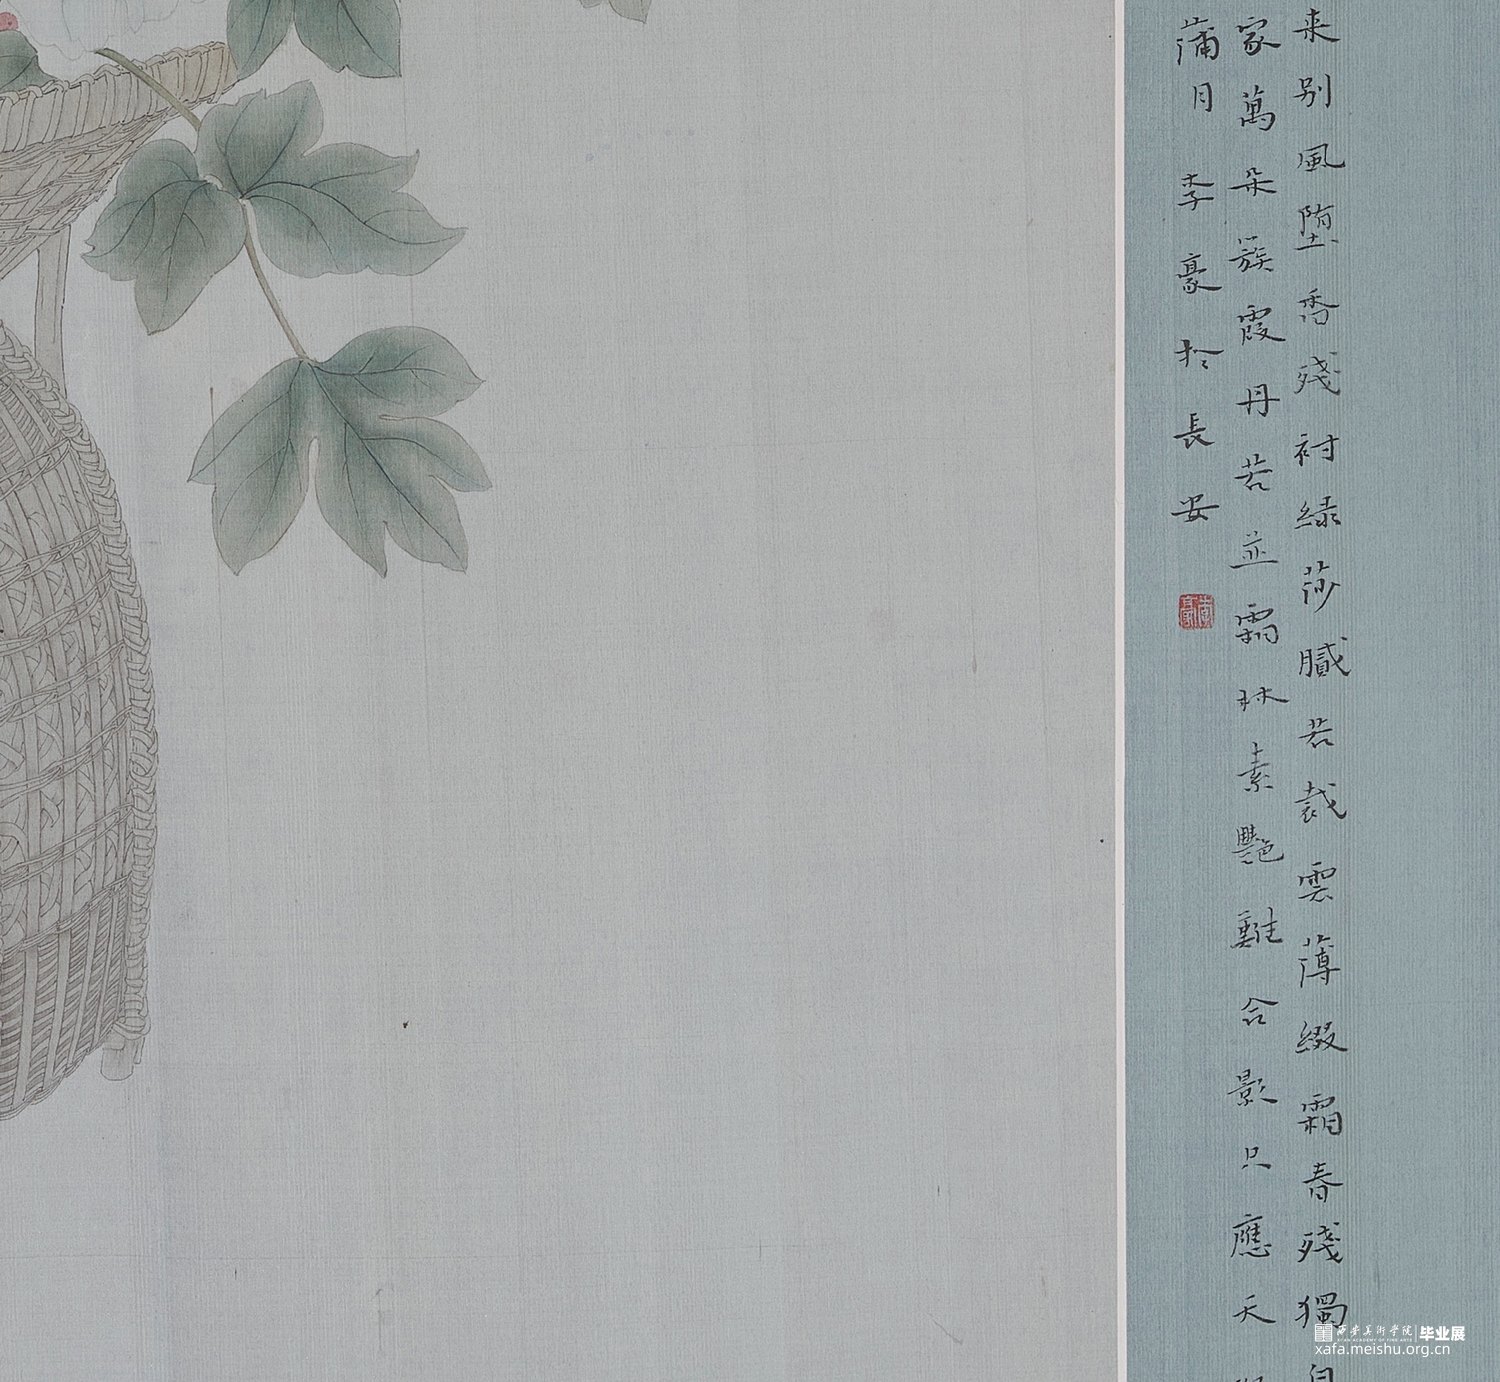 来别風堕香殘衬绿莎膩若裁雲薄綴霜春殘獨自
家萬朵簇霞丹若並霜林素艷難合影只應天
蒲月 李豪於長安
西安美术学院 毕业展
XI'AN ACADEMY OF FINE ARTS
xafa.meishu.org.cn